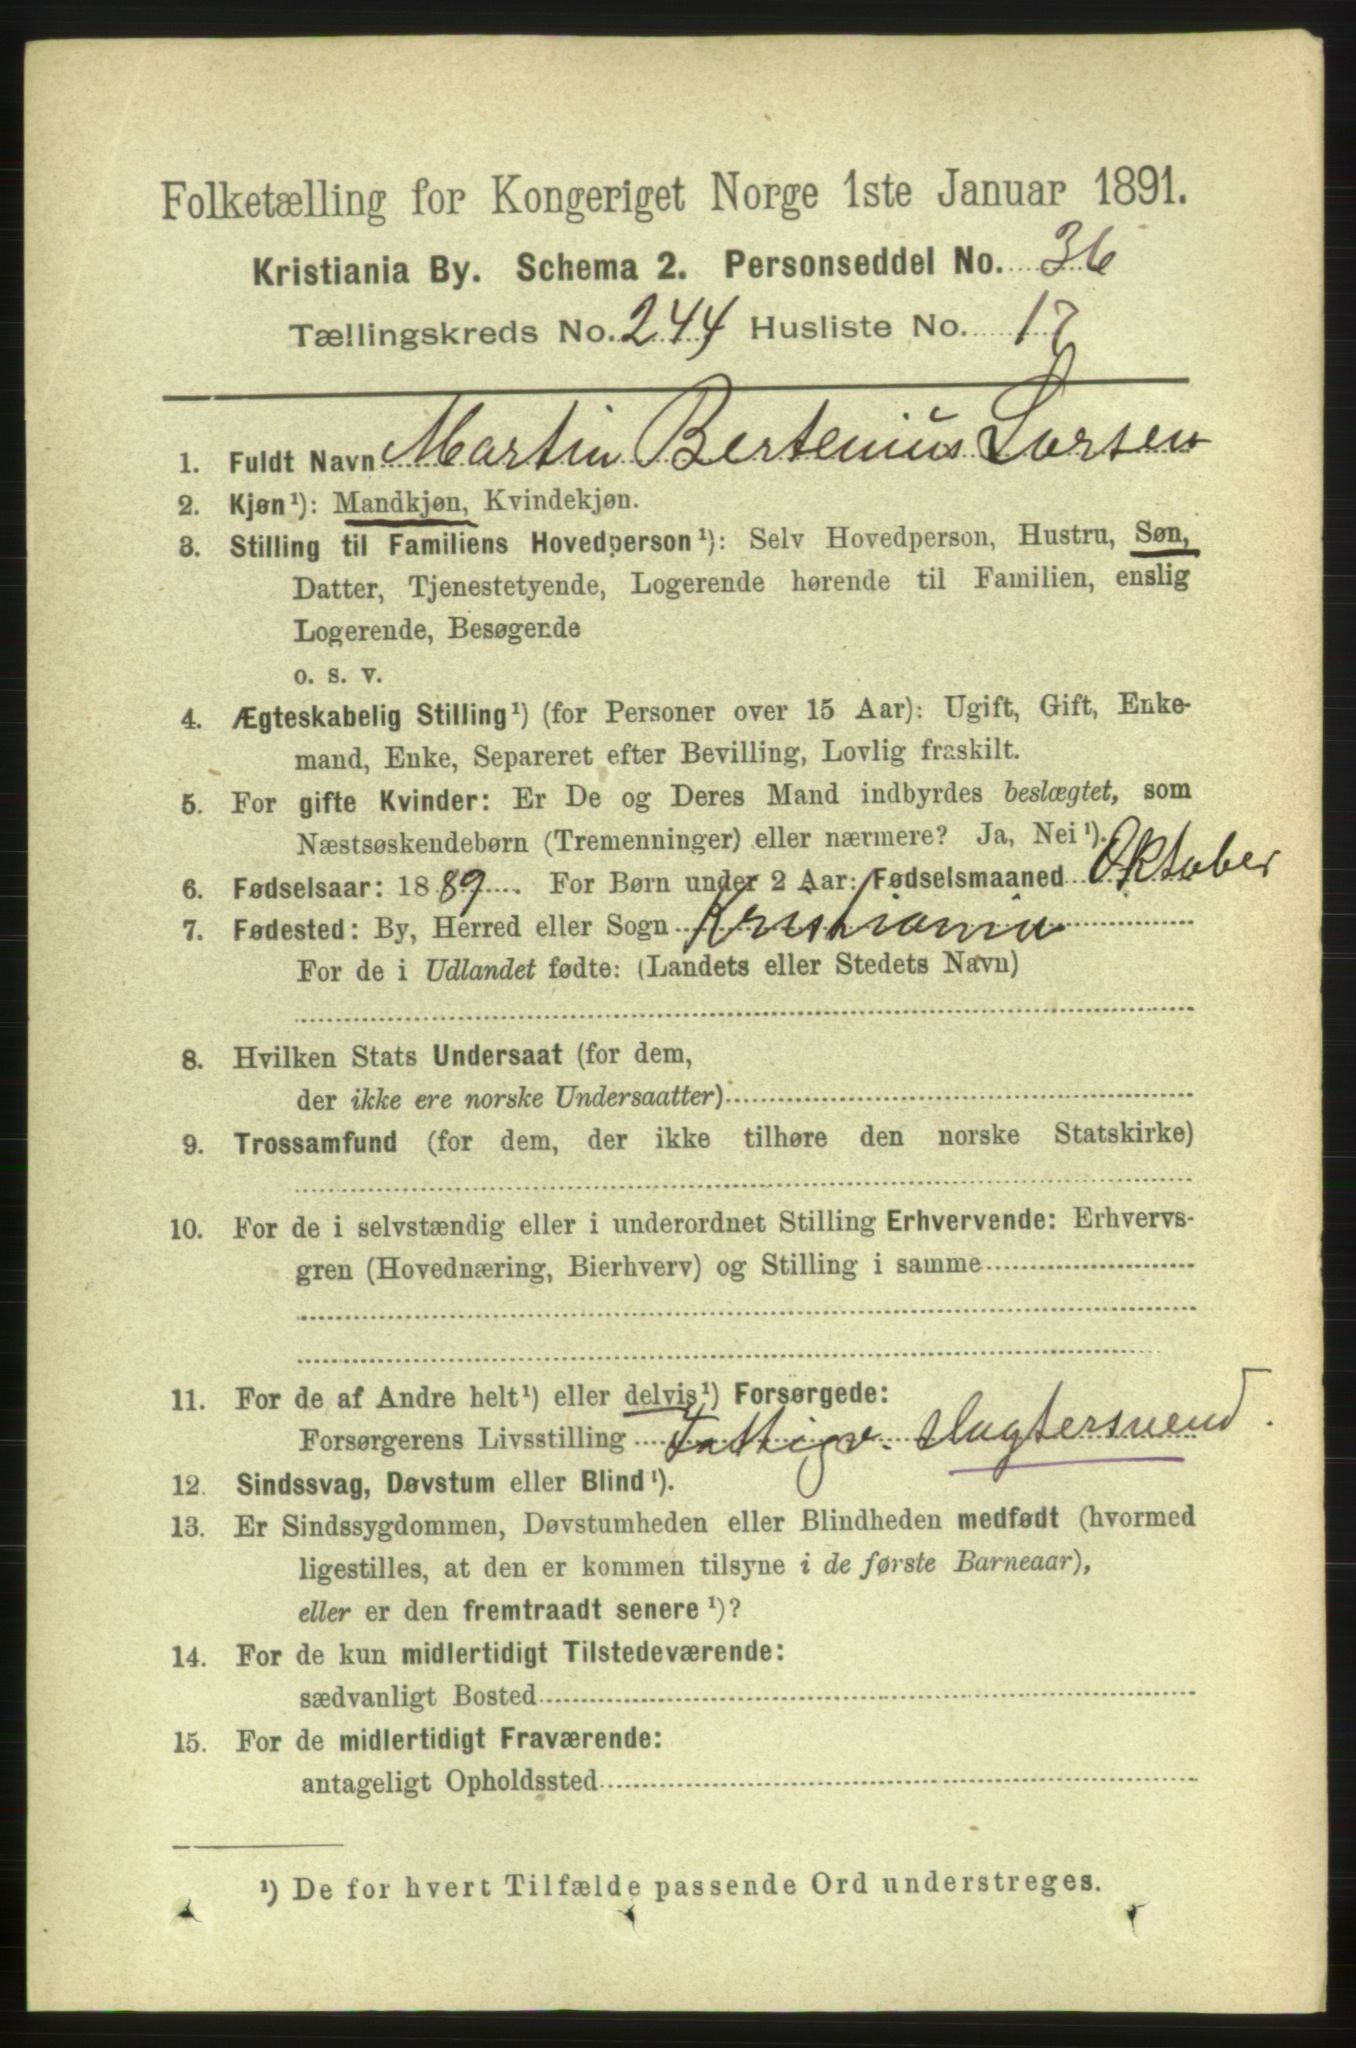 Folketælling for Kongeriget Norge 1ste Januar 1891.
Kristiania By. Schema 2. Personseddel No. 36
Tællingskreds No. 244 Husliste No. 17
1. Fuldt Navn Martin Bertenius Larsen
2. Kjøn¹): Mandkjøn, Kvindekjøn.
3. Stilling til Familiens Hovedperson¹): Selv Hovedperson, Hustru, Søn,
Datter, Tjenestetyende, Logerende hørende til Familien, enslig
Logerende, Besøgende
o. s. v.
4. Ægteskabelig Stilling¹) (for Personer over 15 Aar): Ugift, Gift, Enke-
mand, Enke, Separeret efter Bevilling, Lovlig fraskilt.
5. For gifte Kvinder: Er De og Deres Mand indbyrdes beslægtet, som
Næstsøskendebørn (Tremenninger) eller nærmere? Ja, Nei¹).
6. Fødselsaar: 1889. For Børn under 2 Aar: Fødselsmaaned Oktober
7. Fødested: By, Herred eller Sogn Kristiania
For de i Udlandet fødte: (Landets eller Stedets Navn)
8. Hvilken Stats Undersaat (for dem,
der ikke ere norske Undersaatter)
9. Trossamfund (for dem, der ikke tilhøre den norske Statskirke)
10. For de i selvstændig eller i underordnet Stilling Erhvervende: Erhvervs-
gren (Hovednæring, Bierhverv) og Stilling i samme
11. For de af Andre helt¹) eller delvis¹) Forsørgede:
Forsørgerens Livsstilling Fattigv. Slagtersvend.
12. Sindssvag, Døvstum eller Blind¹).
13. Er Sindssygdommen, Døvstumheden eller Blindheden medfødt (hvormed
ligestilles, at den er kommen tilsyne i de første Barneaar),
eller er den fremtraadt senere¹)?
14. For de kun midlertidigt Tilstedeværende:
sædvanligt Bosted
15. For de midlertidigt Fraværende:
antageligt Opholdssted
¹) De for hvert Tilfælde passende Ord understreges.